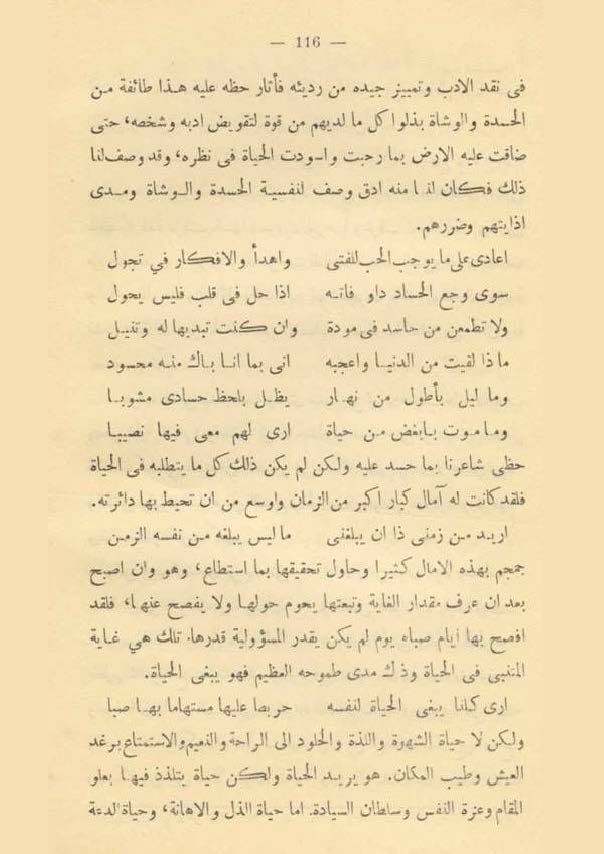 — 116 —
فى نقد الادب وتمييز جيده من رديئه فأثار حظه عليه هذا طائفة من
الحسدة والوشاة بذلوا كل ما لديهم من قوة لتقويض ادبه وشخصه، حتى
ضاقت عليه الارض بما رحبت واسودت الحياة فى نظره، وقد وصف لنا
ذلك فكان لنا منه ادق وصف لنفسية الحسدة والوشاة ومدى
اذايتهم وضررهم.
اعادى على ما يوجب الحب للفتى واهدأ والافكار في تجول
سوى وجع الحساد داو فانه اذا حل فى قلب فليس يحول
ولا تطمعن من حاسد فى مودة وان كنت تبديها له وتنيل
ماذا لقيت من الدنيا واعجبه انى بما انا باك منه محسود
وما ليل بأطول من نهار يظل بلحظ حسادى مشوبا
وما موت بابغض من حياة ارى لهم معى فيها نصيبا
حظى شاعرنا بما حسد عليه ولكن لم يكن ذلك كل ما يتطلبه فى الحياة
فلقد كانت له آمال كبار اكبر من الزمان واوسع من ان تحيط بها دائرته.
اريد من زمنى ذا ان يبلغنى ما ليس يبلغه من نفسه الزمن
جمجم بهذه الامال كثيرا وحاول تحقيقها بما استطاع، وهو وان اصبح
بعد ان عرف مقدار الغاية وتبعتها يحوم حولها ولا يفصح عنها، فلقد
افصح بها أيام صباه يوم لم يكن يقدر المسؤولية قدرها. تلك هي غاية
المتنبى فى الحياة وذلك مدى طموحه العظيم فهو يبغى الحياة.
ارى كلنا يبغى الحياة لنفسه حريصا عليها مستهاما بها صبا
ولكن لا حياة الشهوة واللذة والخلود الى الراحة والنعيم والاستمتاع برغد
العيش وطيب المكان. هو يريد الحياة ولكن حياة يتلذذ فيها بعلو
المقام وعزة النفس وسلطان السيادة. اما حياة الذل والاهانة، وحياة الدعة